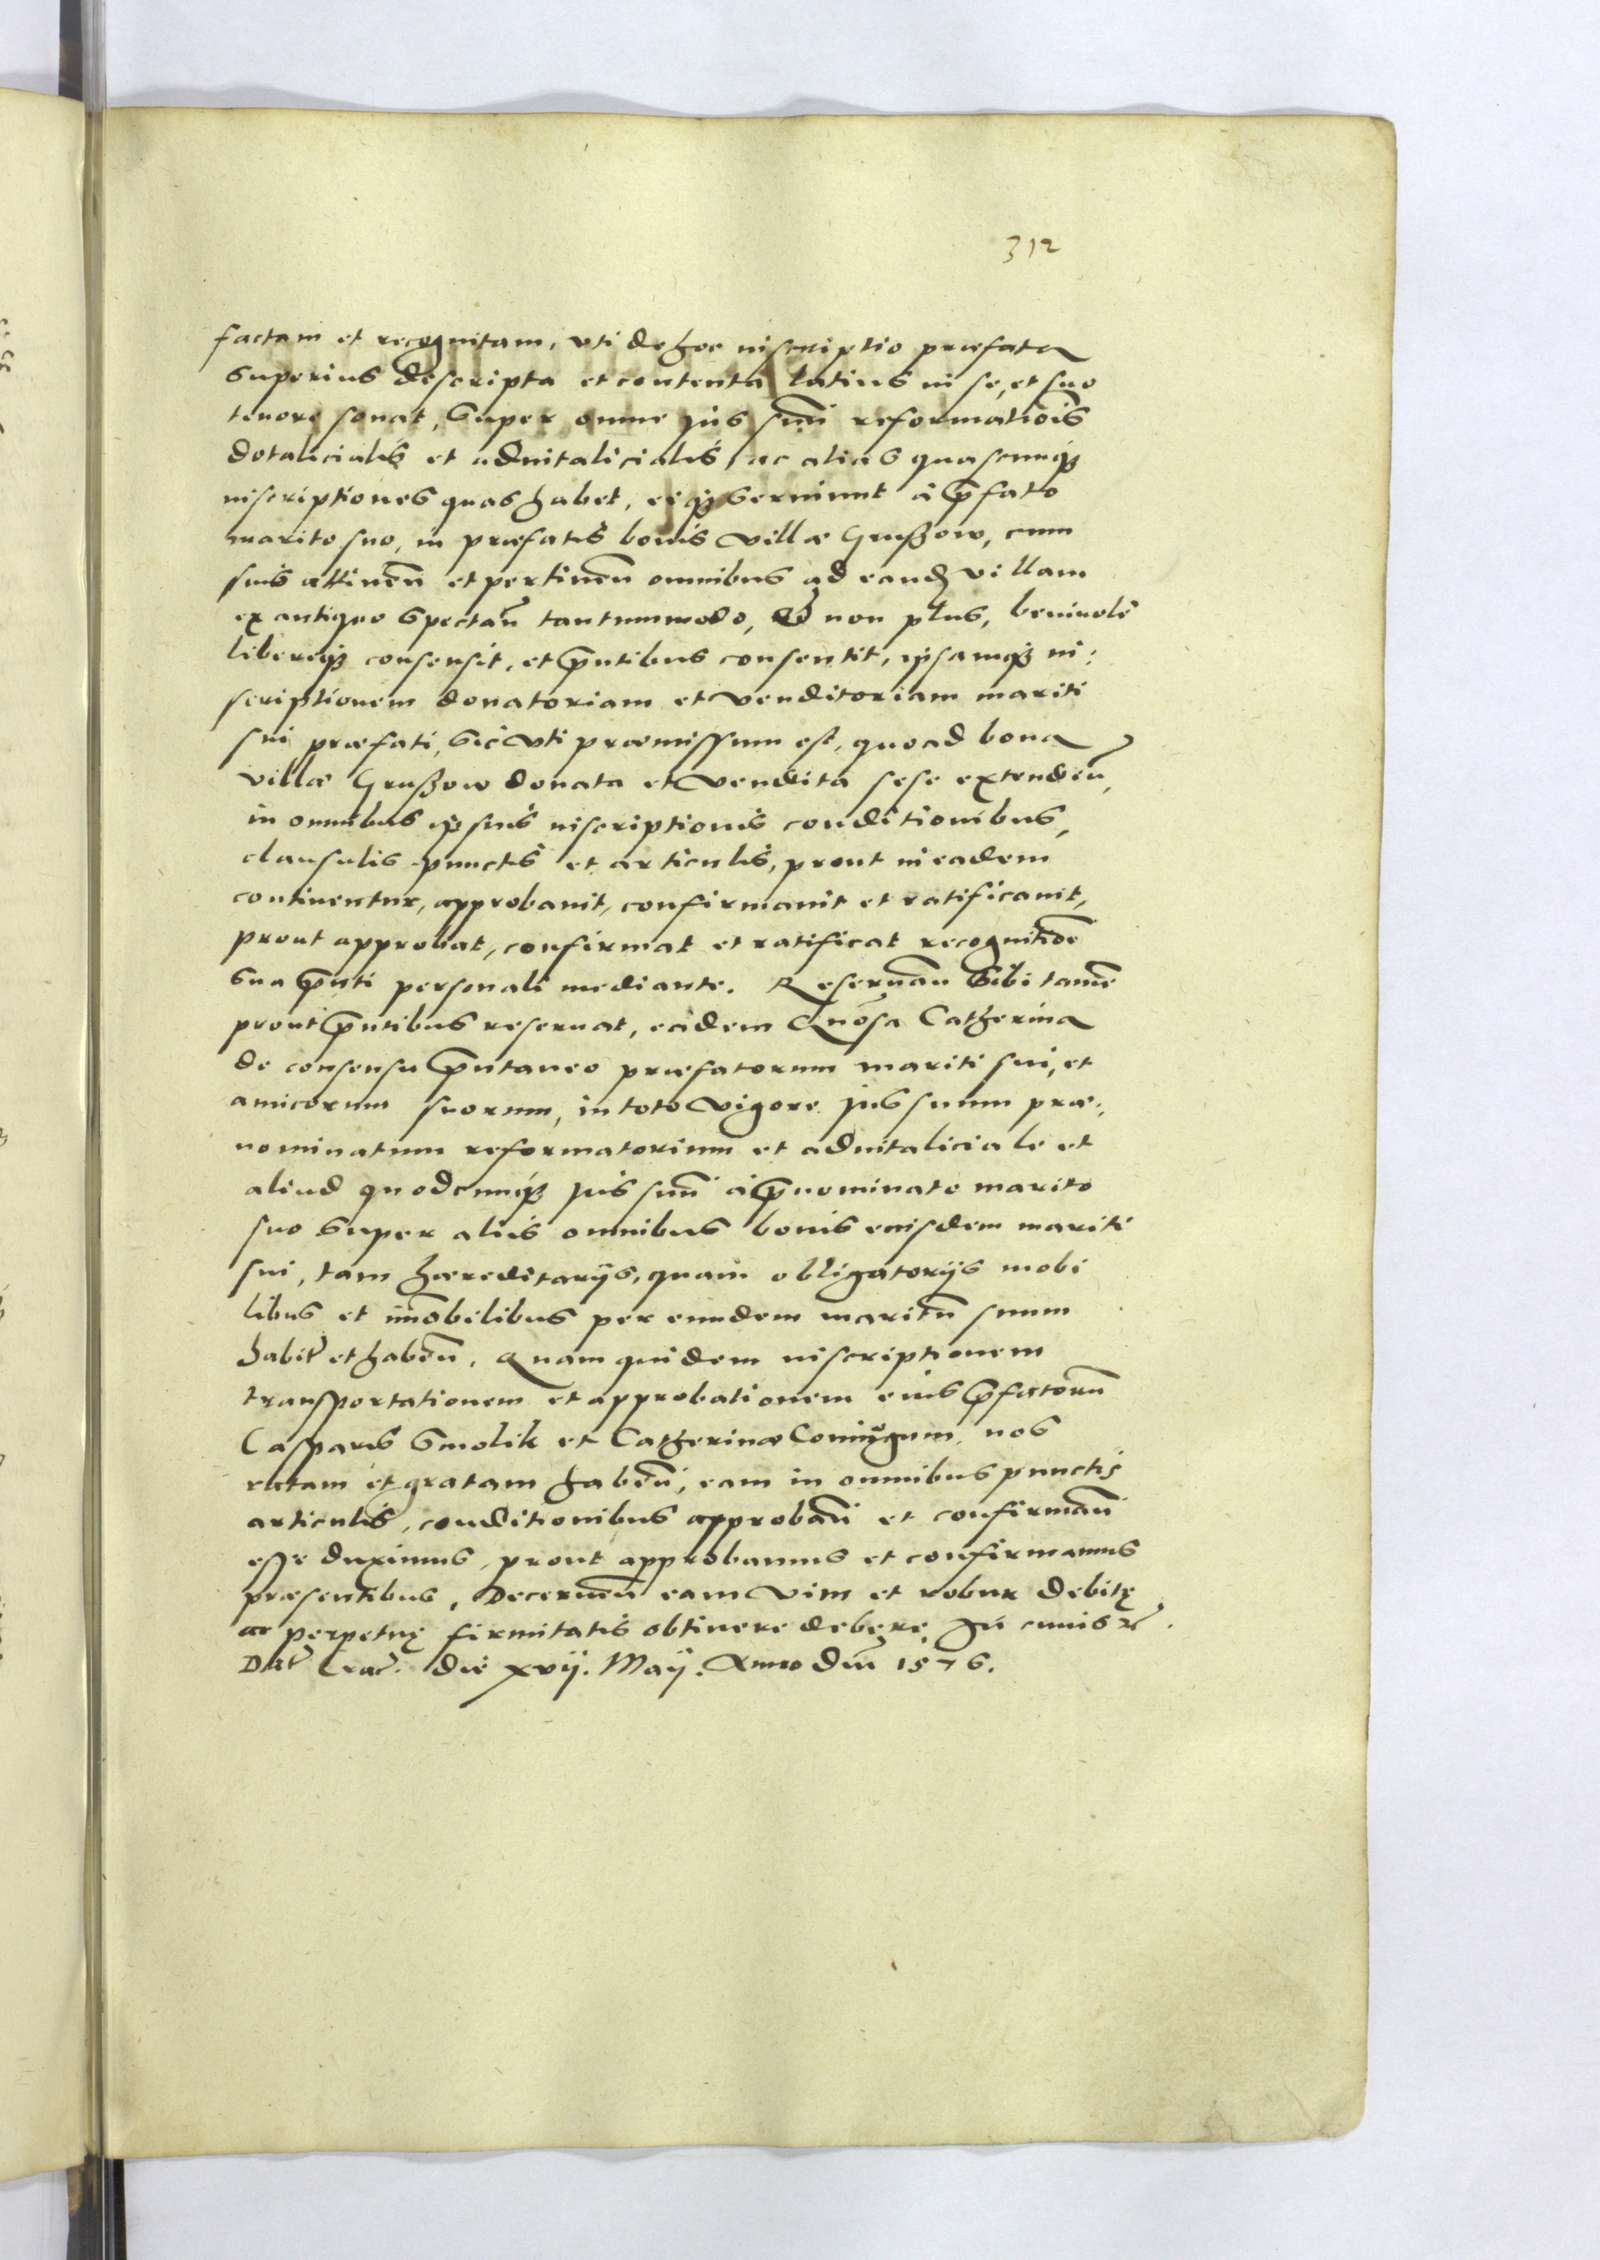 312
factam et recognitam, vti de hoc inscriptio præfata
superius descripta et contenta latius in se, et suo
tenore sonat, super omne jus suũ reformatiõis
dotalicialis et aduitalicialis, ac alias quascunqꝫ
inscriptiones quas habet, eiqꝫ seruiunt à p̃fato
marito suo, in præfatis bonis villæ Grußow, cum
suis attineñ et pertineñ omnibus ad eand villam
ex antiquo spectañ tantummodo, & non plus, beniuole
libereqꝫ consensit, et p̃ntibus consentit, ipsamqꝫ in:
scriptionem donatoriam et venditoriam mariti
sui præfati, sic vti præmissum est, quoad bona
villæ Grußow donata et vendita sese extendeñ,
in omnibus ipsius inscriptionis conditionibus,
clausulis punctis et articulis, prout in eadem
continentur, approbauit, confirmauit et ratificauit,
prout approbat, confirmat et ratificat recognitiõe
sua p̃nti personali mediante. Reseruañ sibi tamẽ
prout p̃ntibus reseruat, eadem Gñosa Catherina
de consensu p̃ntaneo præfatorum mariti sui, et
amicorum suorum, in toto vigore jus suum præ:
nominatum reformatorium et aduitaliciale et
aliud quodcunqꝫ jus suũ à p̃nominato marito
suo super aliis omnibus bonis eiusdem mariti
sui, tam hæreditarijs, quam obligatorijs mobi
libus et im̃obilibus per eundem maritũ suum
habit̃ et habeñ. Quam quidem inscriptionem
transportationem et approbationem eius p̃fatorũ
Casparis Smolik et Catherinæ Coniugum, nos
ratam et gratam habeñ, eam in omnibus punctis
articulis, conditionibus approbañ et confirmañ
esse duximus, prout approbamus et confirmamus
præsentibus, Decerneñ eam vim et robur debitę
ac perpetuę firmitatis obtinere debere. In cuius rei
Dat̃ Crac̃. die xvij. Maij. Anno Dñi 1576.